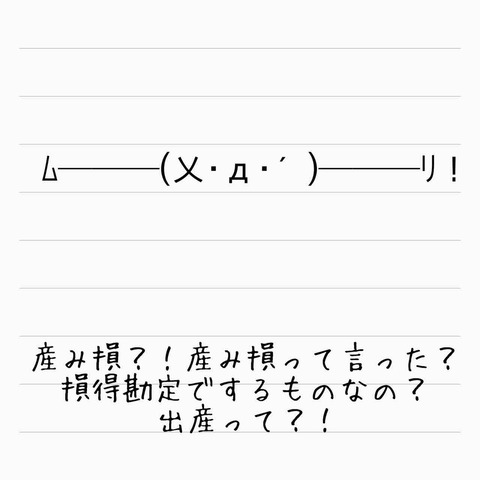 ﾑ────(乂･д･´ )────ﾘ！
産み損？！産み損って言った？
損得勘定でするものなの？
出産って？！